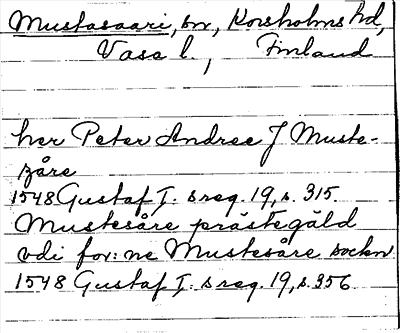 Mustasaari, sn, Korsholms hd,
Vasa l., Finland
her Peter Andree J Muste-
såre
1548 Gustaf I. s reg. 19, s. 315.
Mustesåre prästegäld
vdi for:ne Mustesåre sockn
1548 Gustaf I. s reg. 19, s. 356